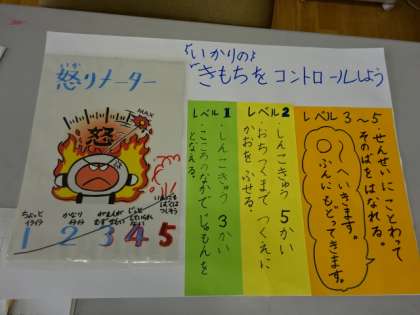 「いかりの」
きもちを コントロールしよう
いか
怒りメーター
MAX
怒
ちょっと
イライラ
かなり
1 2 3 4 5
レベル 1
・しんこきゅう 3かい
・こころのなかで じゅもんを
となえる。
レベル 2
・しんこきゅう 5かい
・おちつくまで つくえに
かおを ふせる。
レベル 3〜5
せんせいに ことわって
そのばを はなれる。
〇〜へいきます。
〇ふんにもどってきます。